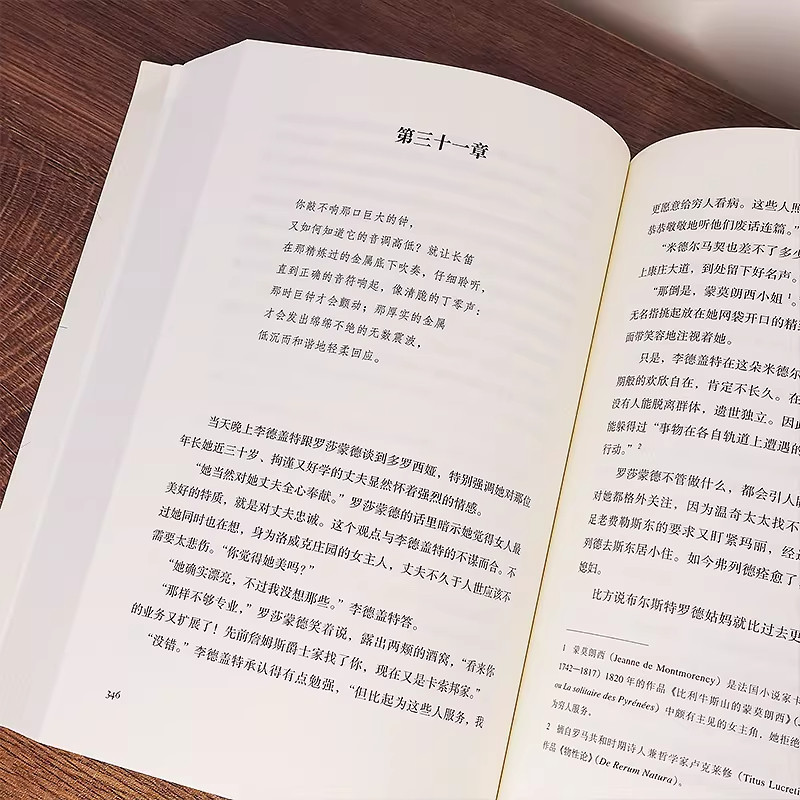 第三十一章
你敲不响那口巨大的钟，
又如何知道它的音调高低？就让长笛
在那精炼过的金属底下吹奏，仔细聆听，
直到正确的音符响起，像清脆的丁零声：
那时巨钟才会颤动；那厚实的金属
才会发出绵绵不绝的无数震波，
低沉而和谐地轻柔回应。
当天晚上李德盖特跟罗莎蒙德谈到多罗西娅，特别强调她对那位
年长她近三十岁、拘谨又好学的丈夫显然怀着强烈的情感。
“她当然对她丈夫全心奉献。”罗莎蒙德的话里暗示她觉得女人最
美好的特质，就是对丈夫忠诚。这个观点与李德盖特的不谋而合。不
过她同时也在想，身为洛威克庄园的女主人，丈夫不久于人世应该不
需要太悲伤。“你觉得她美吗？”
“她确实漂亮，不过我没想那些。”李德盖特答。
“那样不够专业，”罗莎蒙德笑着说，露出两颊的酒窝，“看来你
的业务又扩展了！先前詹姆斯爵士家找了你，现在又是卡索邦家。”
“没错。”李德盖特承认得有点勉强，“但比起为这些人服务，我
346
更愿意给穷人看病。这些人
恭恭敬敬地听他们废话连篇。”
“米德尔马契也差不了多少
上康庄大道，到处留下好名声。
“那倒是，蒙莫朗西小姐¹。
无名指挑起放在她网袋开口的精
面带笑容地注视着她。
只是，李德盖特在这朵米德尔
期般的欢欣自在，肯定不长久。在
没有人能脱离群体，遗世独立。因此
能躲得过“事物在各自轨道上遭遇的
行动。”²
罗莎蒙德不管做什么，都会引人
对她都格外关注，因为温奇太太找不
足老费勒斯东的要求又盯紧玛丽，经
列德去斯东居小住。如今弗列德痊愈了
媳妇。
比方说布尔斯特罗德姑妈就比过去更
1 蒙莫朗西（Jeanne de Montmorency）是法国小说家卡
1742—1817）1820 年的作品《比利牛斯山的蒙莫朗西》（
ou La solitaire des Pyrénées）中颇有主见的女主角，她拒绝
为穷人服务。
2 摘自罗马共和时期诗人兼哲学家卢克莱修（Titus Lucreti
作品《物性论》（De Rerum Natura）。